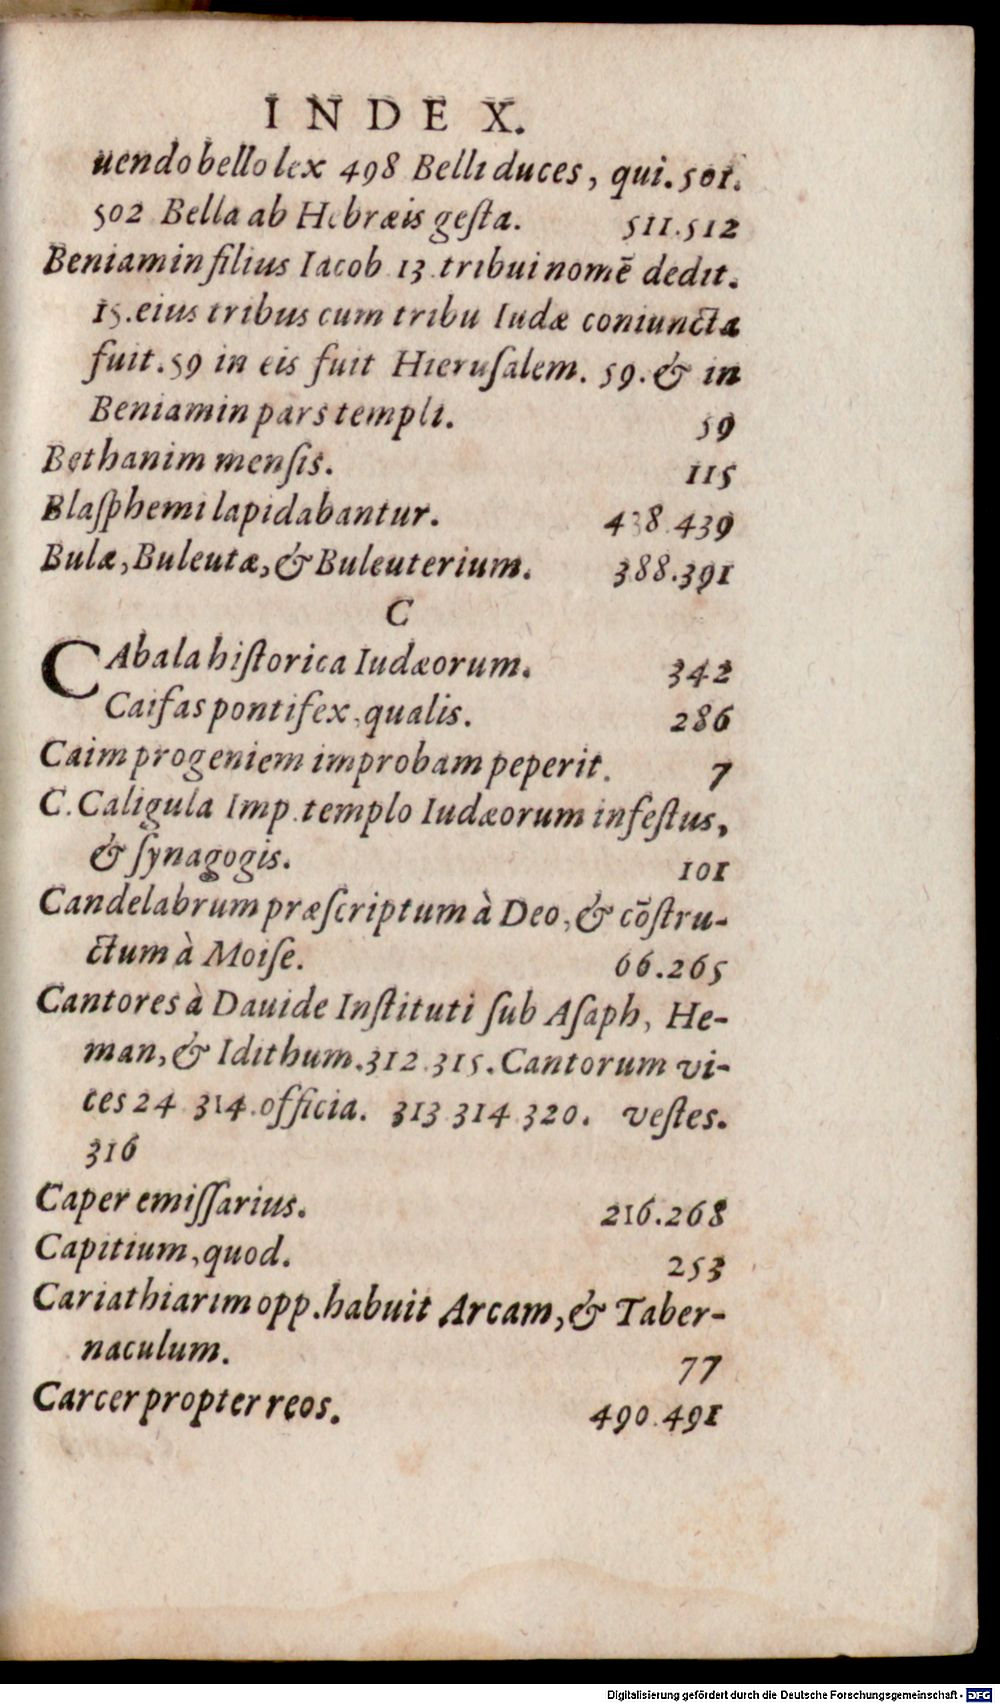 INDEX.
uendo bello lex 498 Belli duces, qui. 501.
502 Bella ab Hebræis gesta. 511.512
Beniamin filius Iacob 13 tribui nomē dedit.
15. eius tribus cum tribu Iudæ coniuncta
fuit. 59 in eis fuit Hierusalem. 59. & in
Beniamin pars templi. 59
Bethanim mensis. 115
Blasphemi lapidabantur. 438.439
Bulæ, Buleutæ, & Buleuterium. 388.391
C
CAbala historica Iudæorum. 342
Caifas pontifex, qualis. 286
Caim progeniem improbam peperit. 7
C. Caligula Imp. templo Iudæorum infestus,
& synagogis. 101
Candelabrum præscriptum à Deo, & cōstru-
ctum à Moise. 66.265
Cantores à Dauide Instituti sub Asaph, He-
man, & Idithum. 312.315. Cantorum vi-
ces 24 314. officia. 313 314 320. vestes.
316
Caper emissarius. 216.268
Capitium, quod. 253
Cariathiarim opp. habuit Arcam, & Taber-
naculum. 77
Carcer propter reos. 490.491
Digitalisierung gefördert durch die Deutsche Forschungsgemeinschaft - DFG